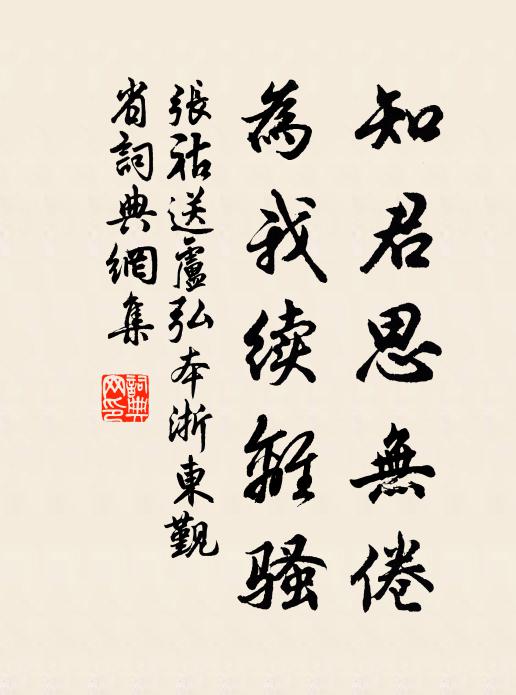 知君思無倦
為我续離骚
張祜送盧弘本浙東覲
省詞典網集
詞典
网印